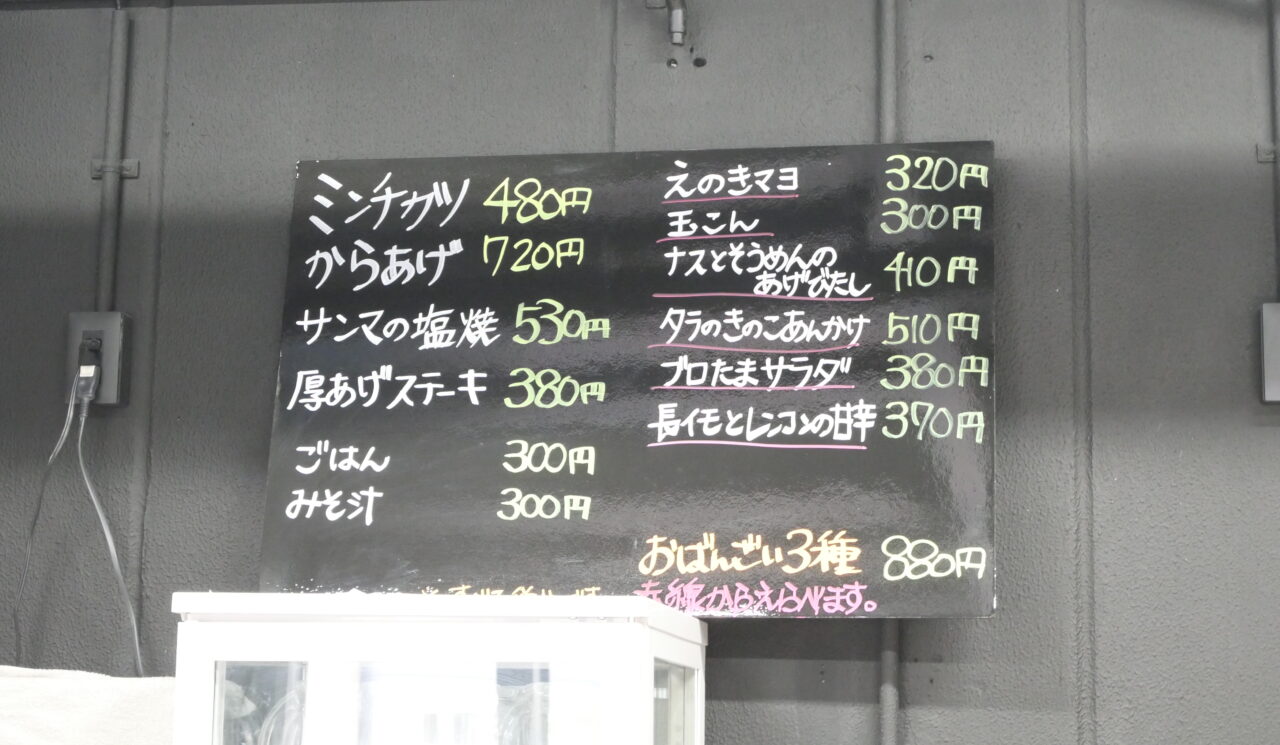 ミンチカツ 480円
からあげ 720円
サンマの塩焼 530円
厚あげステーキ 380円
ごはん 300円
みそ汁 300円
えのきマヨ 320円
玉こん 300円
ナスとそうめんの
あげびたし 410円
タラのきのこあんかけ 510円
ブロたまサラダ 380円
長イモとレンコンの甘辛 370円
おばんざい3種 880円
赤線からえらべます。